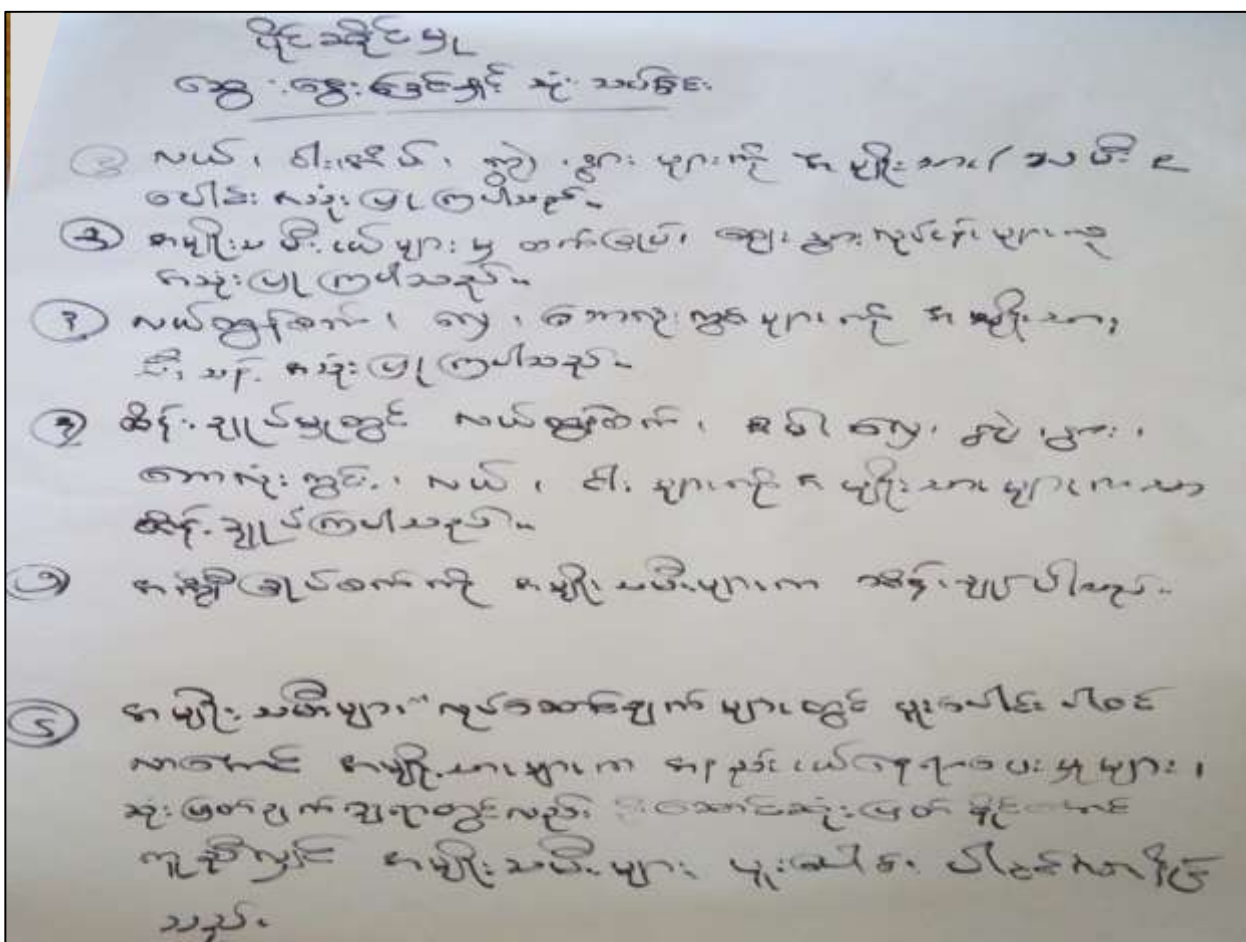 ပိုင်ဆိုင်မှု
ဆွေးနွေးခြင်းနှင့် သုံးသပ်ခြင်း
① လယ်၊ ဝါး၊ အိမ်၊ ကျွဲ၊ နွား များကို အမျိုးသား/သမီး
ပေါင်း အသုံးပြုကြပါသည်။
② အမျိုးသမီးငယ်များမှ စက်ချုပ်၊ ဈေး လုပ်ငန်းများကို
အသုံးပြုကြပါသည်။
၃ လယ်ထွန်စက်၊ လှေ၊ ဘောလုံးကွင်းများကို အမျိုးသား
အသုံးပြုကြပါသည်။
၄ ထိန်းချုပ်မှုတွင် လယ်ထွန်စက်၊ လှေ၊ ကျွဲ၊ နွား၊
ဘောလုံးကွင်း၊ လယ်၊ ဝါး များကို အမျိုးသားများကသာ
ထိန်းချုပ်ကြပါသည်။
အပ်ချုပ်စက်ကို အမျိုးသမီးများက ထိန်းချုပ်ပါသည်။
၅ အမျိုးသမီးများ လုပ်ဆောင်ချက်များတွင် ပူးပေါင်းပါဝင်
လာအောင် အမျိုးသားများက အနည်းငယ်နေရာပေးမှုများ၊
ဆုံးဖြတ်ချက်ချရာတွင်လည်း ဆုံးဖြတ်နိုင်အောင်
ကူညီလျှင် အမျိုးသမီးများ ပူးပေါင်းပါဝင်လာနိုင်
သည်။